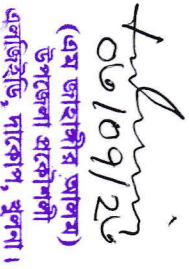 (এম জাহাঙ্গীর আলম)
উপজেলা প্রকৌশলী
এলজিইডি, দাকোপ, খুলনা।